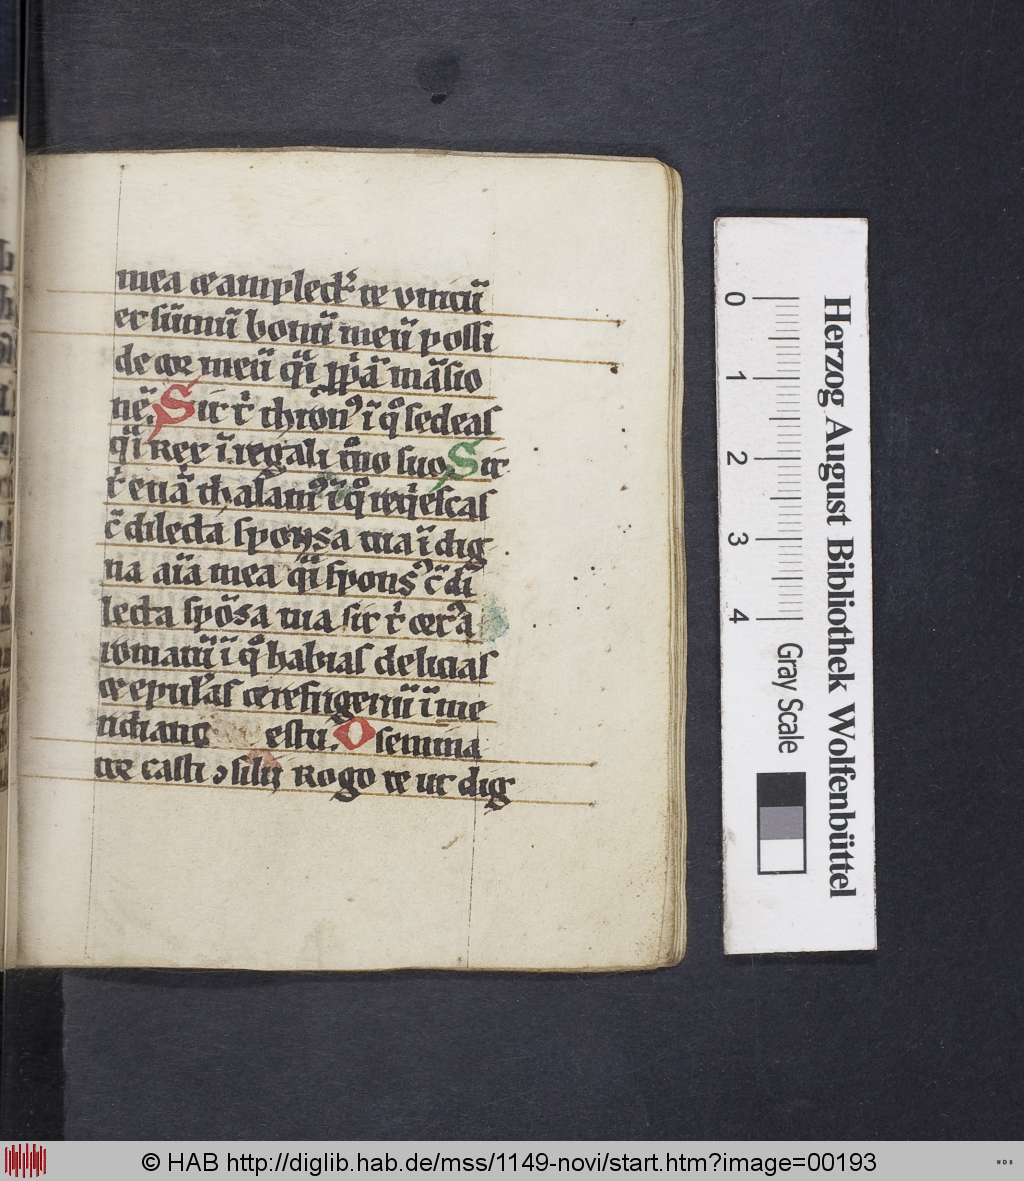 mea ⁊ amplectꝛ̄ te vnicū
et sūmū bonū meū possi
de cor meū q̄i ꝓpͥā māsio
nē. Sit tͥ thronꝰ ī qͦ sedeas
q̄i Rex ī regali thͦno suo Sit
tͥ etiā thalamꝰ ī qͦ reqͥescas
c̄ dilecta sponsa tua ī dig
na aīa mea q̄i sponsꝰ c̄ di
lecta spōsa tua sit tͥ
ī qͦ habeas delicias
⁊ epulas ⁊ refrigeriū ī me
ridiano estu. O semina
tor casti ↄsilij Rogo te ut dig
Herzog August Bibliothek Wolfenbüttel
0 1 2 3 4 Gray Scale
© HAB http://diglib.hab.de/mss/1149-novi/start.htm?image=00193